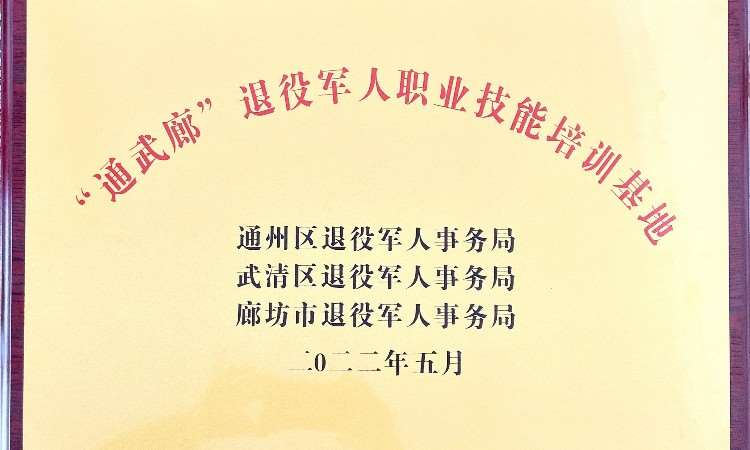 “通武廊”退役军人职业技能培训基地
通州区退役军人事务局
武清区退役军人事务局
廊坊市退役军人事务局
二0二二年五月